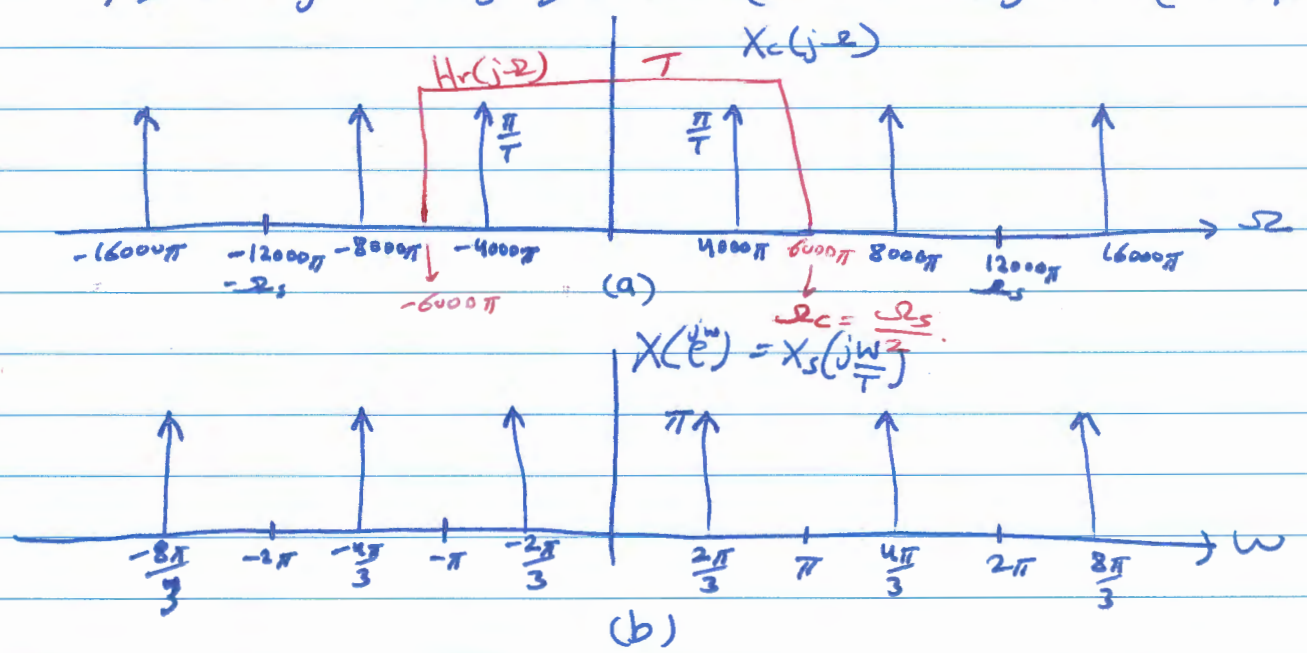 Xc(jΩ)
Hr(jΩ) T
π/T π/T
-16000π -12000π -8000π -4000π 4000π 6000π 8000π 12000π 16000π Ω
-Ωs -6000π (a) Ωs
Ωc = Ωs/2
X(e^jw) = Xs(j w/T)
π
-8π/3 -2π -4π/3 -π -2π/3 2π/3 π 4π/3 2π 8π/3 w
(b)